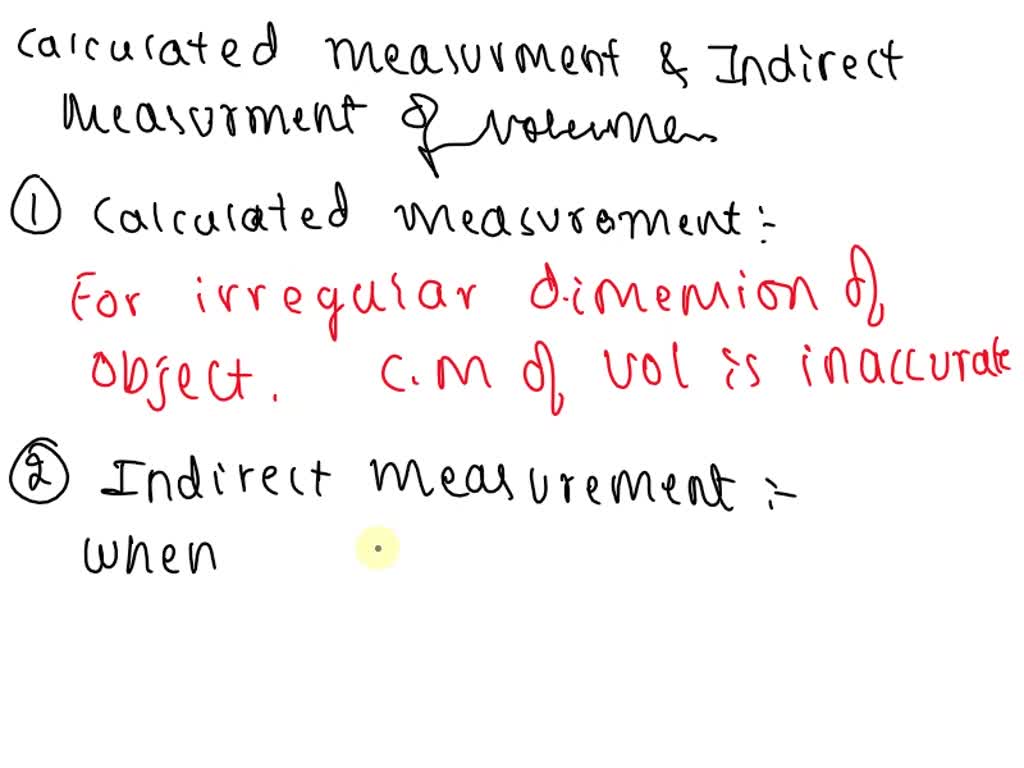 Calculated measurment & Indirect
Measurment of volumen
① Calculated measurement :-
For irregular dimemion of
object. C.M of vol is inaccurate
② Indirect measurement :-
when